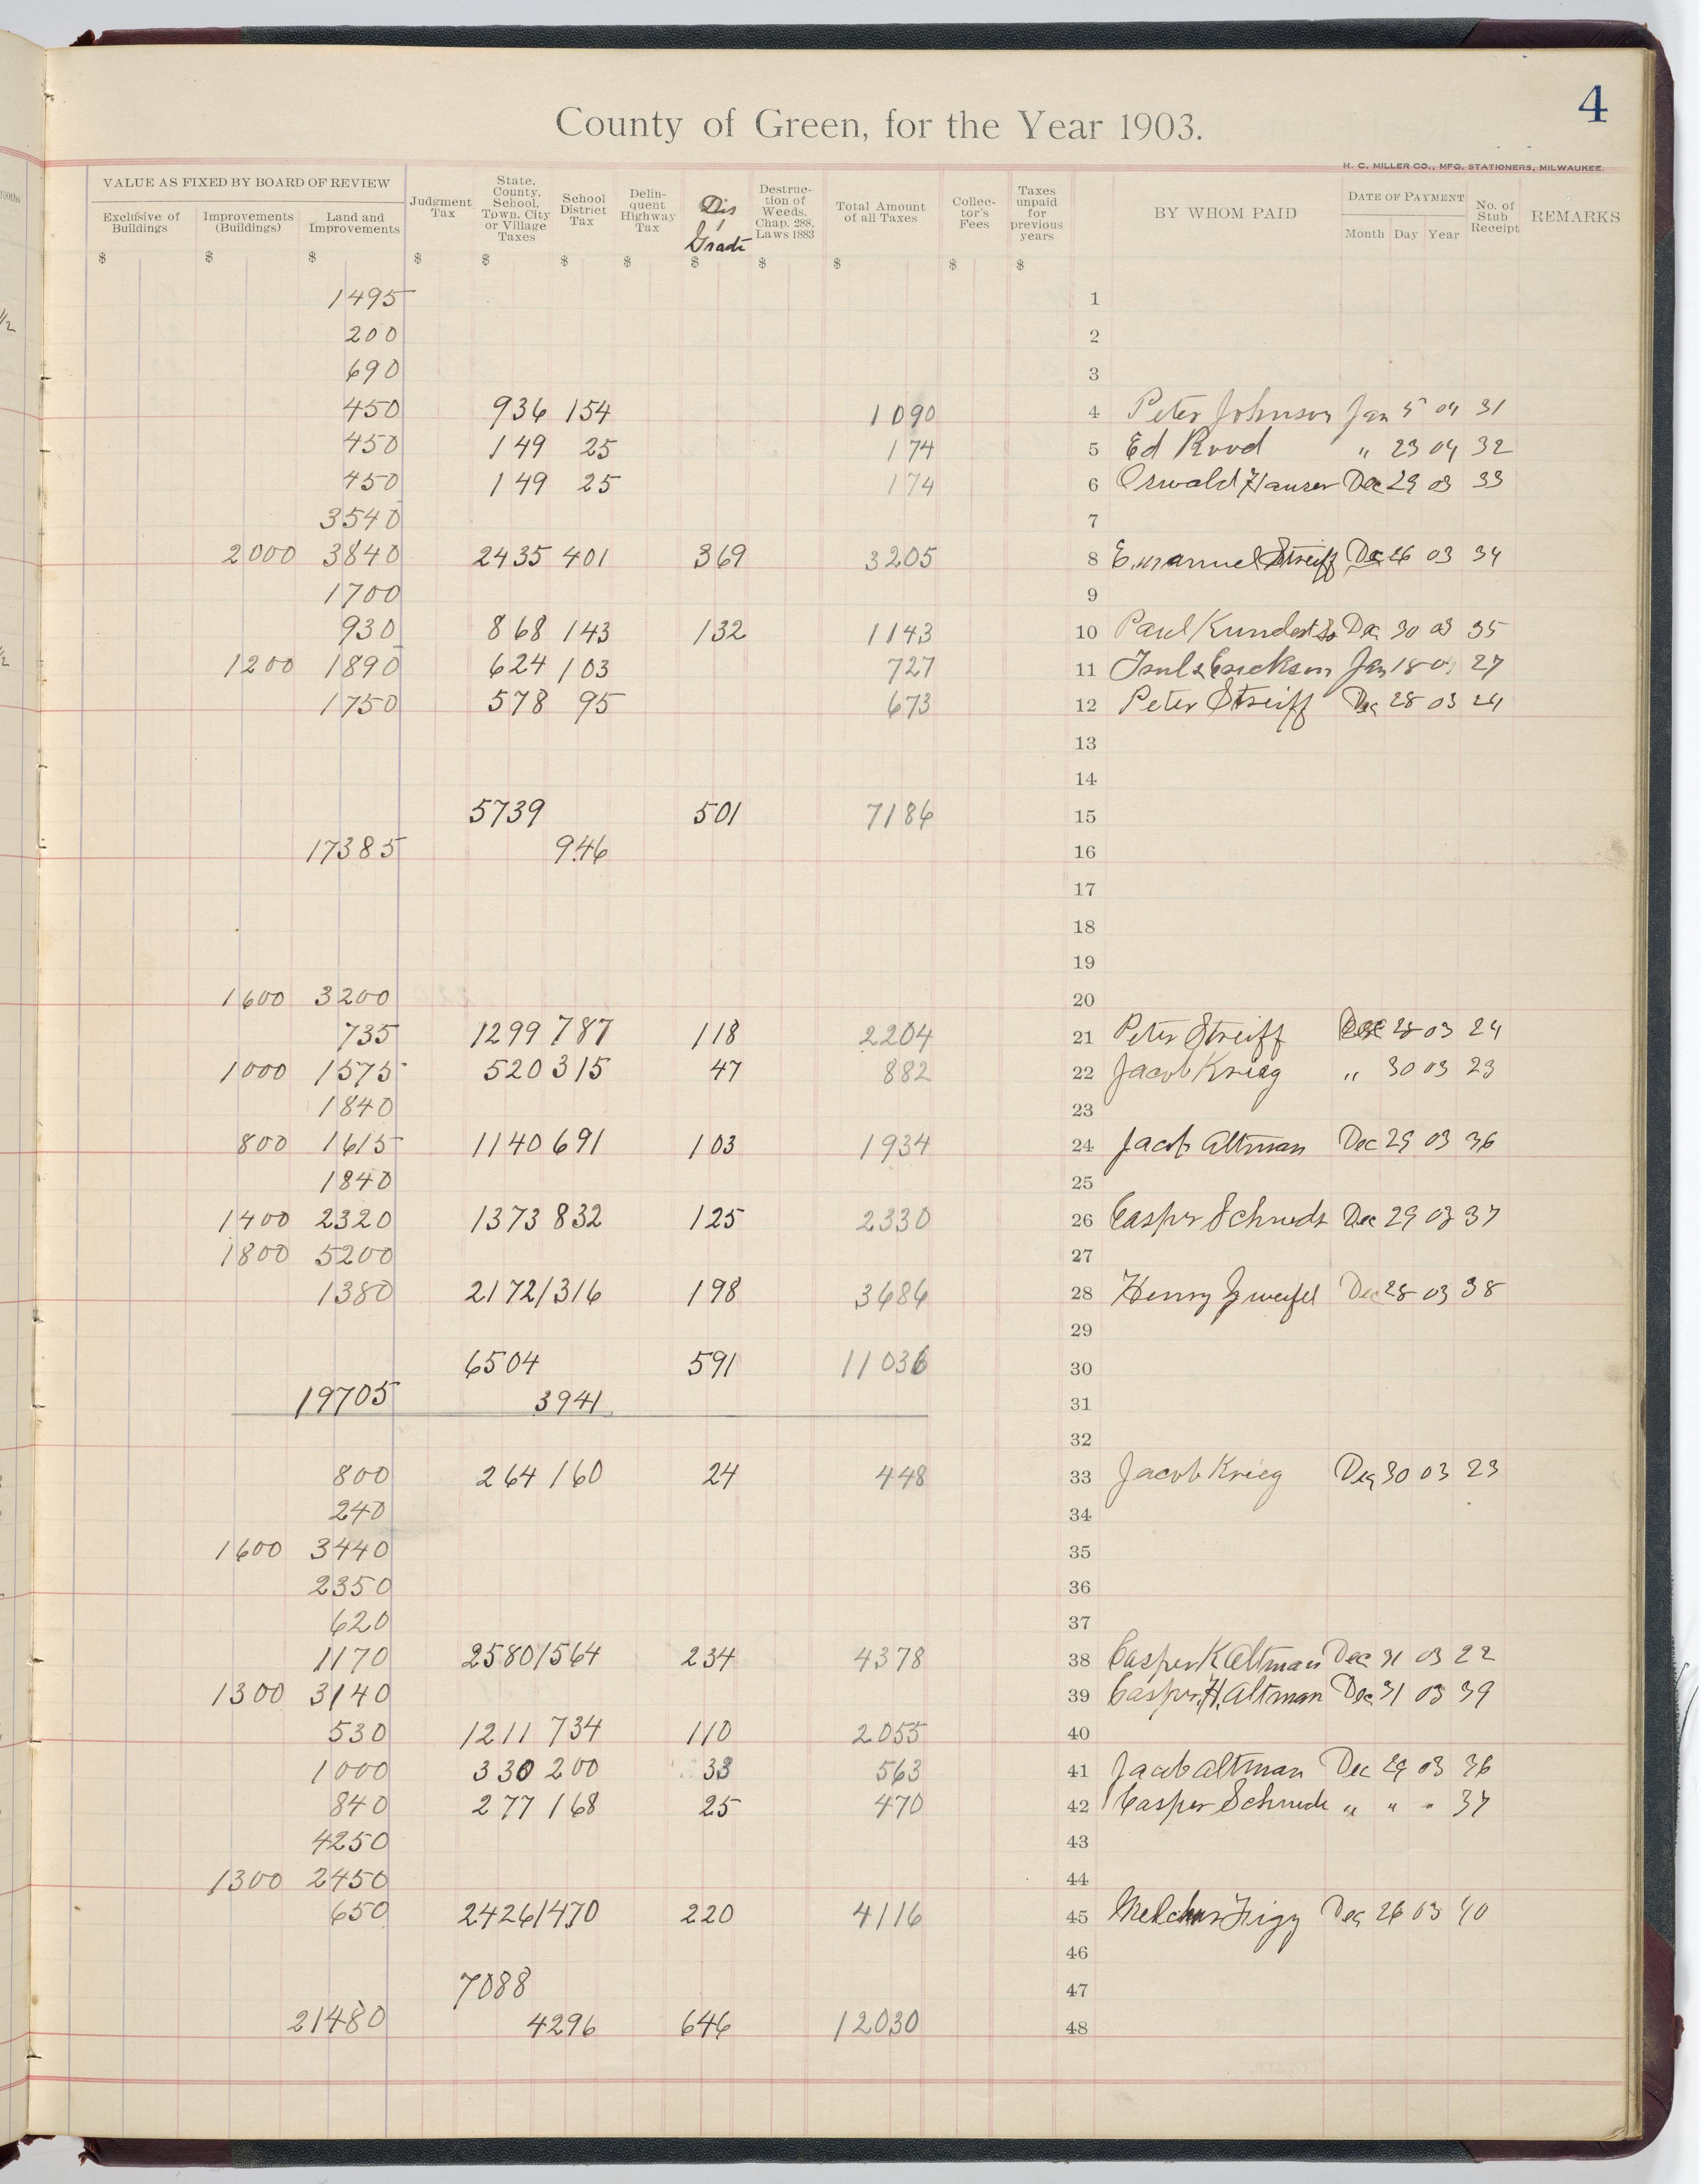 4
County of Green, for the Year 1903.
H. C. MILLER CO., MFG. STATIONERS, MILWAUKEE.
VALUE AS FIXED BY BOARD OF REVIEW
Exclusive of Buildings Improvements (Buildings) Land and Improvements Judgment Tax State, County, School, Town, City or Village Taxes School District Tax Delinquent Highway Tax Dis Grade Destruction of Weeds, Chap. 288, Laws 1883 Total Amount of all Taxes Collector's Fees Taxes unpaid for previous years BY WHOM PAID DATE OF PAYMENT Month Day Year No. of Stub Receipt REMARKS
$ $ $ $ $ $ $ $ $ $ $ $
1495 1
200 2
690 3
450 936 154 1090 4 Peter Johnson Jan 5 04 31
450 149 25 174 5 Ed Rood " 23 04 32
450 149 25 174 6 Oswald Hauser Dec 29 03 33
3540 7
2000 3840 2435 401 369 3205 8 Emanuel Streiff Dec 26 03 34
1700 9
930 868 143 132 1143 10 Paul Kundert Dec 30 03 35
1200 1890 624 103 727 11 Erickson Jan 18 27
1750 578 95 673 12 Peter Streiff Dec 28 03 24
13
14
5739 501 7186 15
17385 946 16
17
18
19
1600 3200 20
735 1299 787 118 2204 21 Peter Streiff Dec 28 03 24
1000 1575 520 315 47 882 22 Jacob Krieg " 30 03 23
1840 23
800 1615 1140 691 103 1934 24 Jacob Altman Dec 29 03 36
1840 25
1400 2320 1373 832 125 2330 26 Casper Dec 29 03 37
1800 5200 27
1380 2172 1316 198 3686 28 Henry Zweifel Dec 28 03 38
29
6504 591 11036 30
19705 3941 31
32
800 264 160 24 448 33 Jacob Krieg Dec 30 03 23
240 34
1600 3440 35
2350 36
620 37
1170 2580 1564 234 4378 38 Casper K Altman Dec 31 03 22
1300 3140 39 Casper H. Altman Dec 31 03 39
530 1211 734 110 2055 40
1000 330 200 33 563 41 Jacob Altman Dec 29 03 36
840 277 168 25 470 42 Casper " " " 37
4250 43
1300 2450 44
650 2426 1470 220 4116 45 Figy Dec 26 03 40
46
7088 47
21480 4296 646 12030 48